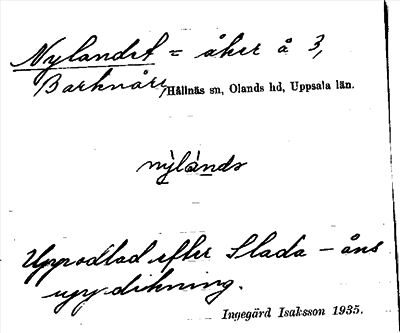 Nylandet = åker å 3,
Barknåre, Hållnäs sn, Olands hd, Uppsala län.
nỳlánds
Uppodlad efter Slada-åns
uppdikning.
Ingegärd Isaksson 1935.